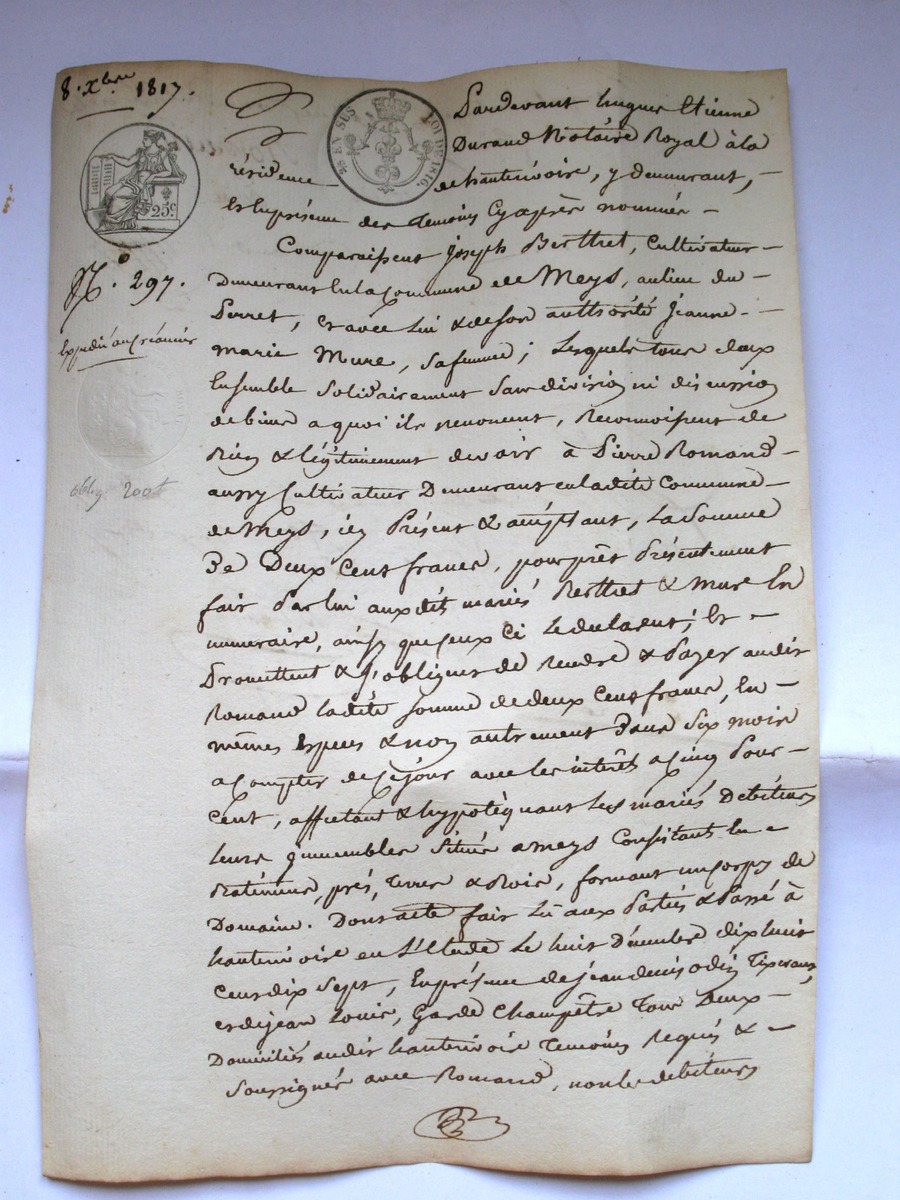 8. Xbre 1817.
25 EN SUS LOI DE 1816.
25c
No. 297.
Expédié au créancier
oblig. 200 f
Pardevant hugues Etienne
Durand Notaire Royal à la
résidence de hauterivoire, y demeurant,
Et En présence des temoins Cyaprès nommés
Comparaissent Joseph Berthet, Cultivateur
Demeurant En la Commune de Meys, au lieu du
Perret, et avec lui & de son authorité Jeanne
marie Mure, sa femme; Lesquels tous deux
Ensemble solidairement sans division ni discussion
de biens a quoi ils renoncent, Reconnoissent de
Rien & légitimement devoir à Pierre Romand
aussy Cultivateur Demeurant en ladite Commune
de Meys, icy Présent & acceptant, La somme
De Deux Cent francs, pour prêt Présentement
fait Par lui aux dits mariés Berthet & Mure En
numeraire, ainsy que Ceux Ci le declarent; Et
Promettent & s'obligent de rendre & Payer audit
Romand ladite somme de deux Cent francs, En
mêmes Espèces & non autrement Dans six mois
a Compter de Ce jour avec les interêt a Cinq Pour
Cent, affectant & hypotéquant les mariés Débiteurs
leurs immeubles Situés a meys Consistants En
Batiments, prés, Terres & Bois, formant un Corps de
Domaine. Dont acte fait Lû aux Parties & Passé à
hauterivoire en L'Etude Le huit Décembre dix huit
Cent dix Sept, En présence de jean denis odin Tixerand,
et de jean Louis, Garde Champêtre Tous Deux
Domiciliés audit hauterivoire Temoins Requis &
Soussignés avec Romand, non les débiteurs